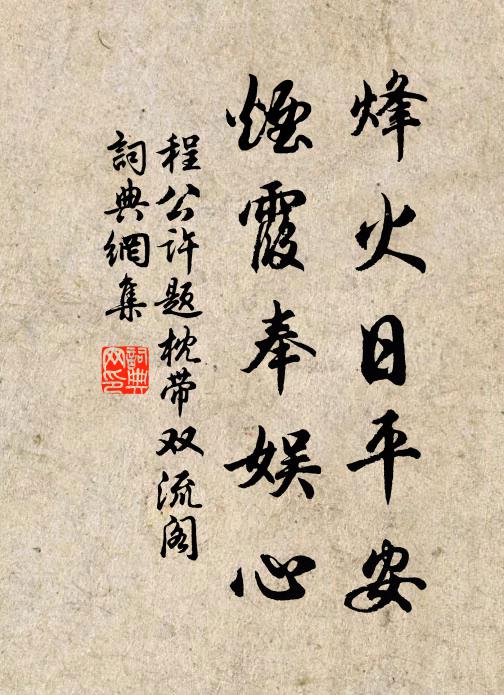 烽火日平安
煙霞奉娱心
程公许题枕带双流阁
詞典網集
詞典
网印